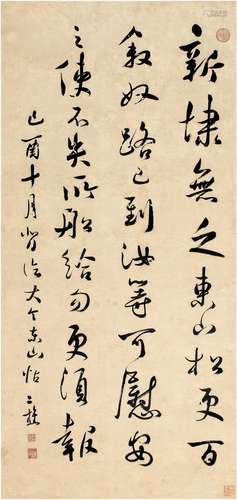 新埭無乏東山松更百
敘奴路已到汝等可慰安
之使不失所船給勿更須報
己酉十月背临大令东山帖